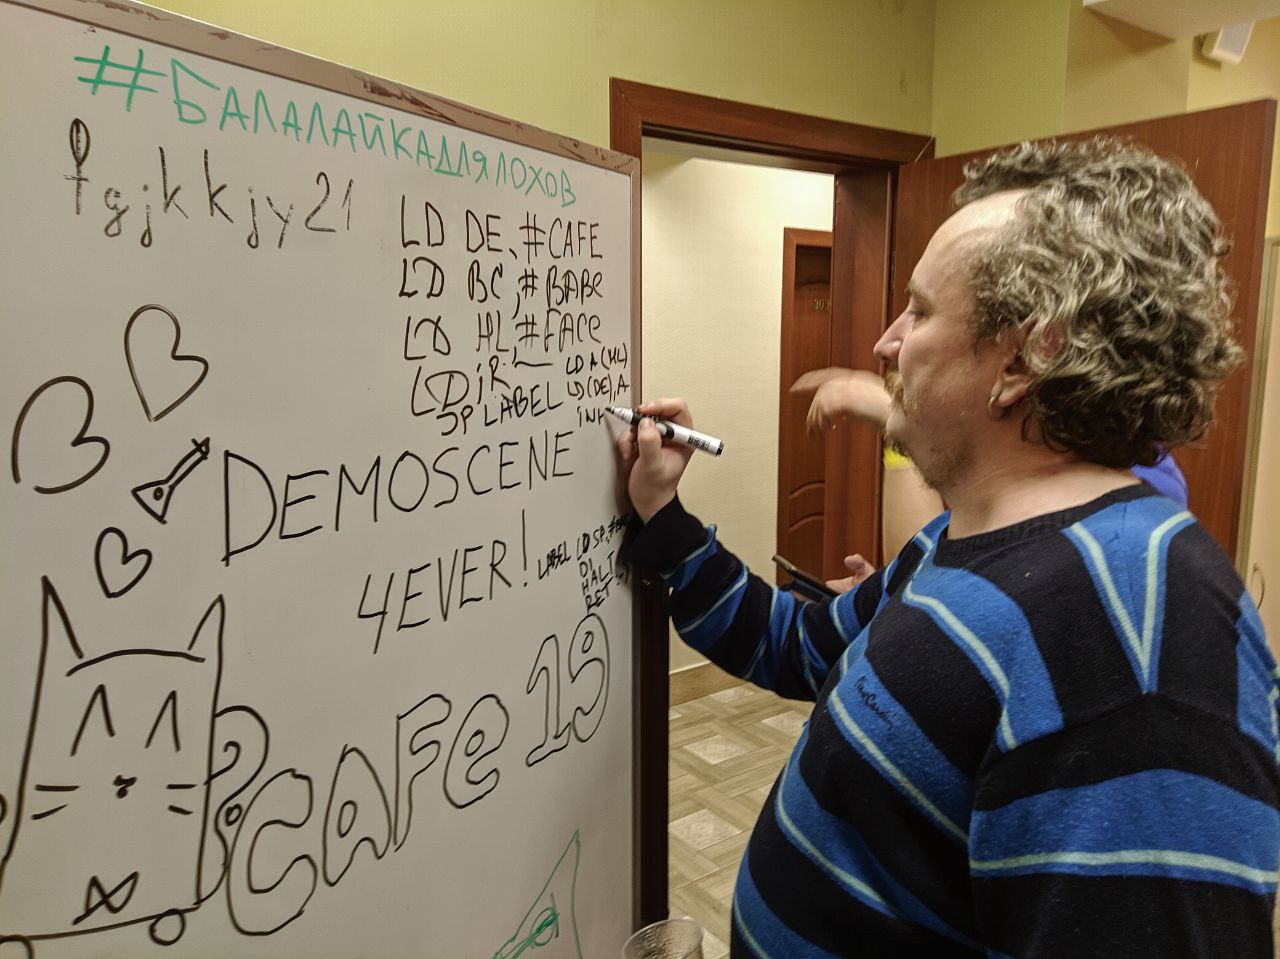 #БАЛАЛАЙКАДЛЯЛОХОВ
fgjkkjy21
LD DE, #CAFE
LD BC, #BABE
LD HL, #FACE
LD A (HL)
LD (DE), A
JP LABEL
DEMOSCENE
4EVER!
LABEL LD SP,
DI
HALT
RET
CAFE 19
303
Pierre Cardin